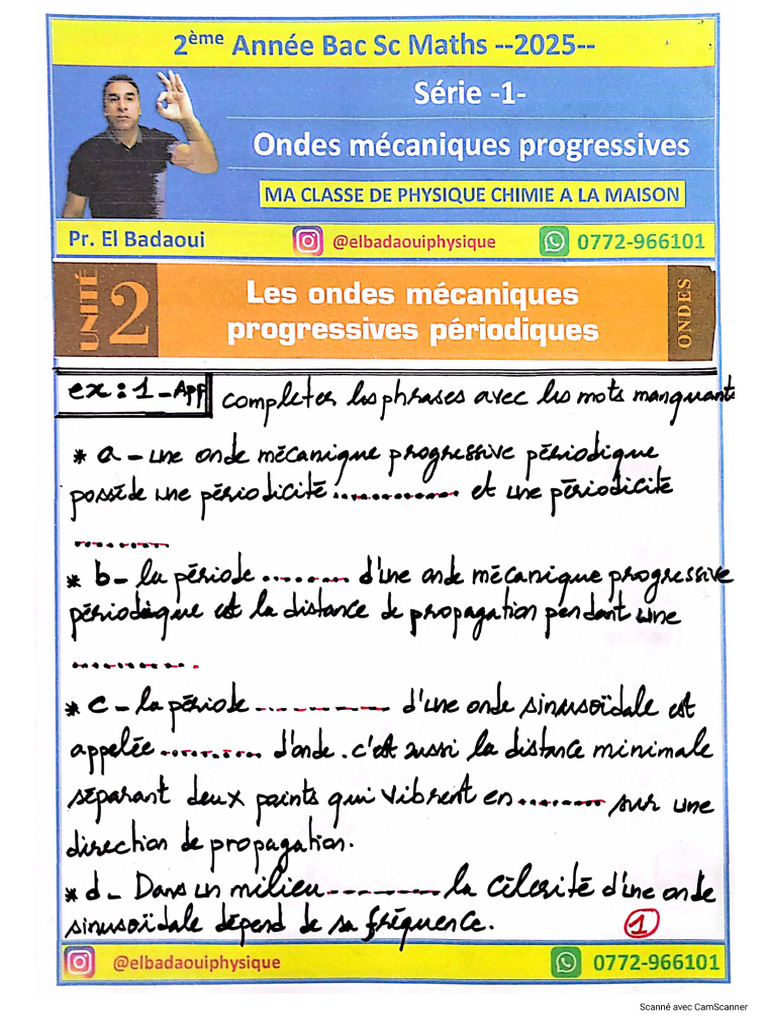 2ème Année Bac Sc Maths --2025--
Série -1-
Ondes mécaniques progressives
MA CLASSE DE PHYSIQUE CHIMIE A LA MAISON
Pr. El Badaoui
@elbadaouiphysique
0772-966101
UNITÉ 2
Les ondes mécaniques
progressives périodiques
ONDES
ex : 1 - App completer les phrases avec les mots manquants
* a - une onde mécanique progressive périodique
posséde une périodicité ............. et une périodicité
.........
* b - la période ......... d'une onde mécanique progressive
périodique est la distance de propagation pendant une
............
* c - la période ............. d'une onde sinusoïdale est
appelée .......... d'onde. c'est aussi la distance minimale
séparant deux points qui vibrent en ......... sur une
direction de propagation.
* d - Dans un milieu ........... la célerité d'une onde
sinusoïdale dépend de sa fréquence.
1
@elbadaouiphysique
0772-966101
Scanné avec CamScanner